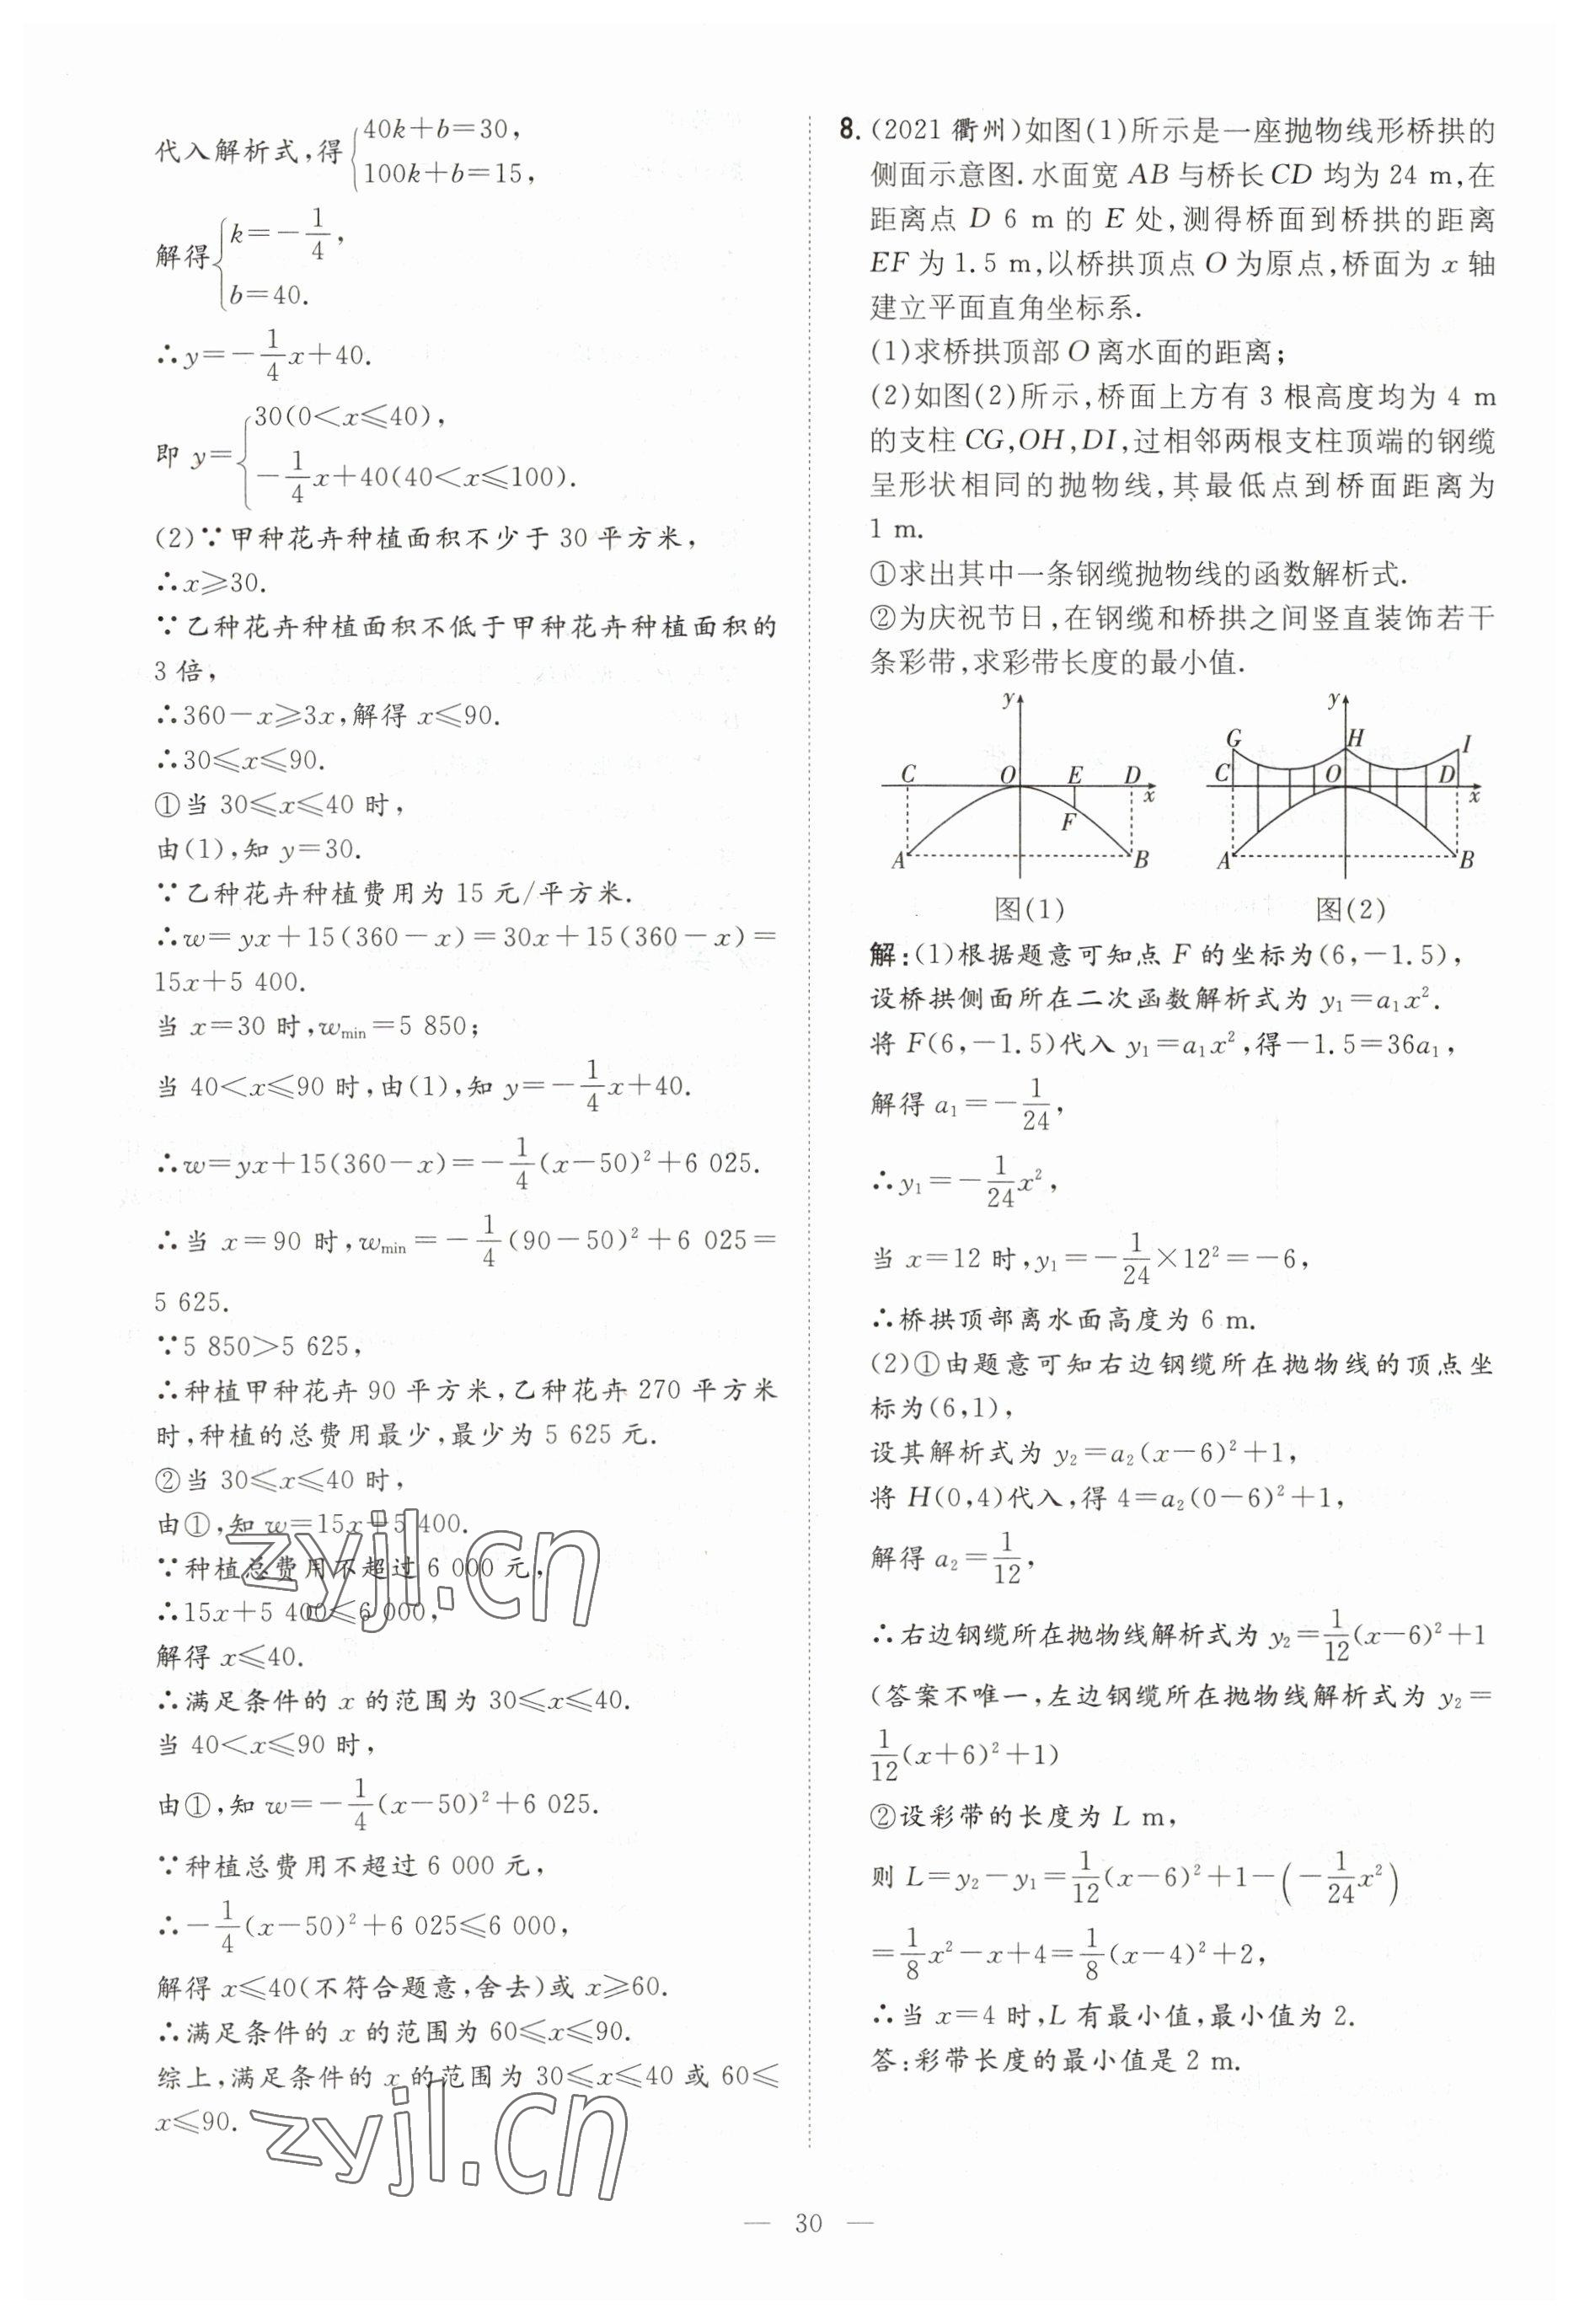 代入解析式,得{40k+b=30,
100k+b=15,
解得{k=-1/4,
b=40.
∴y=-1/4x+40.
即 y={30(0<x≤40),
-1/4x+40(40<x≤100).
(2)∵甲种花卉种植面积不少于 30 平方米,
∴x≥30.
∵乙种花卉种植面积不低于甲种花卉种植面积的
3 倍,
∴360-x≥3x,解得 x≤90.
∴30≤x≤90.
①当 30≤x≤40 时,
由(1),知 y=30.
∵乙种花卉种植费用为 15 元/平方米.
∴w=yx+15(360-x)=30x+15(360-x)=
15x+5 400.
当 x=30 时,wmin=5 850;
当 40<x≤90 时,由(1),知 y=-1/4x+40.
∴w=yx+15(360-x)=-1/4(x-50)²+6 025.
∴当 x=90 时,wmin=-1/4(90-50)²+6 025=
5 625.
∵5 850>5 625,
∴种植甲种花卉 90 平方米,乙种花卉 270 平方米
时,种植的总费用最少,最少为 5 625 元.
②当 30≤x≤40 时,
由①,知 w=15x+5 400.
∵种植总费用不超过 6 000 元,
∴15x+5 400≤6 000,
解得 x≤40.
∴满足条件的 x 的范围为 30≤x≤40.
当 40<x≤90 时,
由①,知 w=-1/4(x-50)²+6 025.
∵种植总费用不超过 6 000 元,
∴-1/4(x-50)²+6 025≤6 000,
解得 x≤40(不符合题意,舍去)或 x≥60.
∴满足条件的 x 的范围为 60≤x≤90.
综上,满足条件的 x 的范围为 30≤x≤40 或 60≤
x≤90.
zyjl.cn
zyjl.cn
8.(2021 衢州)如图(1)所示是一座抛物线形桥拱的
侧面示意图.水面宽 AB 与桥长 CD 均为 24 m,在
距离点 D 6 m 的 E 处,测得桥面到桥拱的距离
EF 为 1.5 m,以桥拱顶点 O 为原点,桥面为 x 轴
建立平面直角坐标系.
(1)求桥拱顶部 O 离水面的距离;
(2)如图(2)所示,桥面上方有 3 根高度均为 4 m
的支柱 CG,OH,DI,过相邻两根支柱顶端的钢缆
呈形状相同的抛物线,其最低点到桥面距离为
1 m.
①求出其中一条钢缆抛物线的函数解析式.
②为庆祝节日,在钢缆和桥拱之间竖直装饰若干
条彩带,求彩带长度的最小值.
y
C O E D
x
F
A B
图(1)
y
G H I
C O D
x
A B
图(2)
解:(1)根据题意可知点 F 的坐标为(6,-1.5),
设桥拱侧面所在二次函数解析式为 y₁=a₁x².
将 F(6,-1.5)代入 y₁=a₁x²,得-1.5=36a₁,
解得 a₁=-1/24,
∴y₁=-1/24x²,
当 x=12 时,y₁=-1/24×12²=-6,
∴桥拱顶部离水面高度为 6 m.
(2)①由题意可知右边钢缆所在抛物线的顶点坐
标为(6,1),
设其解析式为 y₂=a₂(x-6)²+1,
将 H(0,4)代入,得 4=a₂(0-6)²+1,
解得 a₂=1/12,
∴右边钢缆所在抛物线解析式为 y₂=1/12(x-6)²+1
(答案不唯一,左边钢缆所在抛物线解析式为 y₂=
1/12(x+6)²+1)
②设彩带的长度为 L m,
则 L=y₂-y₁=1/12(x-6)²+1-(-1/24x²)
=1/8x²-x+4=1/8(x-4)²+2,
∴当 x=4 时,L 有最小值,最小值为 2.
答:彩带长度的最小值是 2 m.
— 30 —